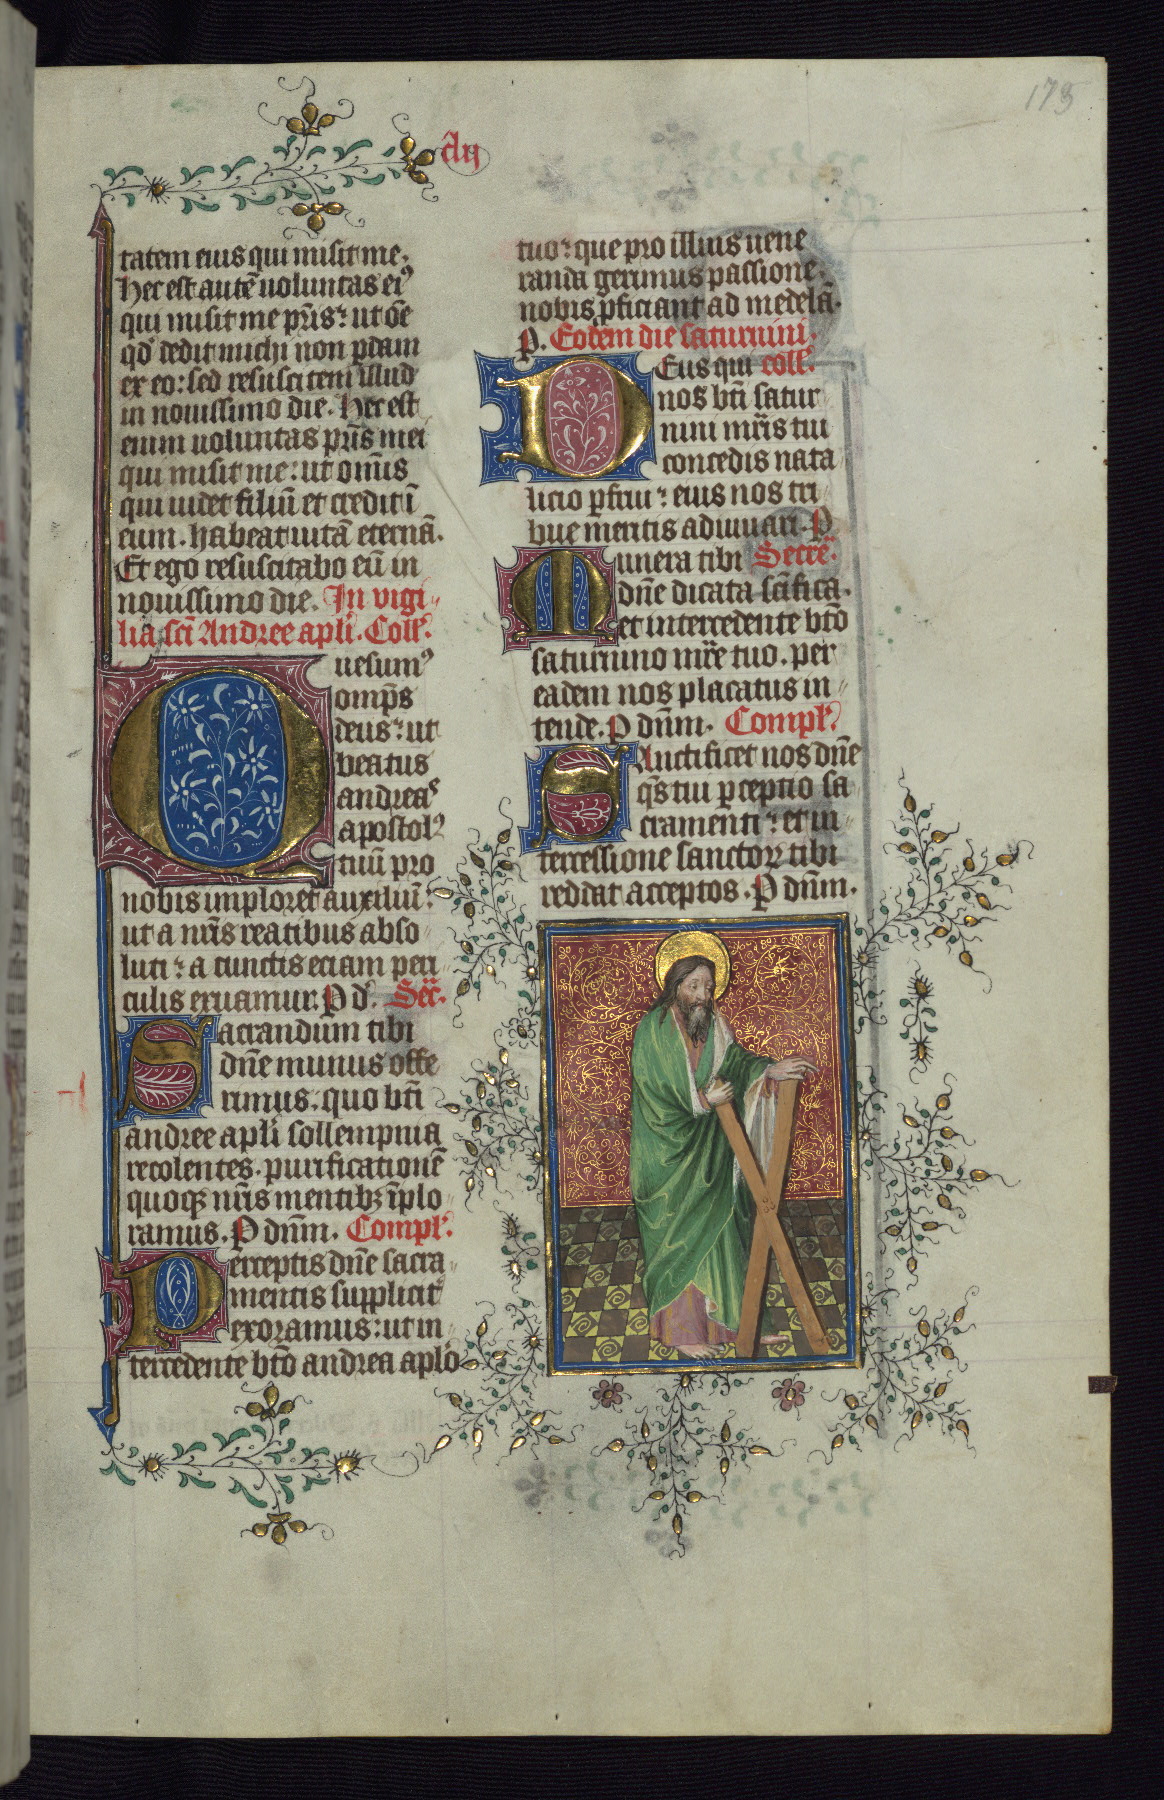 173
clii
tatem eius qui misit me.
Hec est autē uoluntas ei⁹
qui misit me pr̄is: ut oē
qd̛ dedit michi non ꝑdam
ex eo: sed resuscitem illud
in nouissimo die. Hec est
enim uoluntas pr̄is mei
qui misit me: ut omīs
qui uidet filiū et credit ī
eum. habeat uitā eternā.
Et ego resuscitabo eū in
nouissimo die. In vigi
lia sc̄i Andree apl̄i. Coll̛.
Quesum⁹
omp̄s
deus: ut
beatus
andreas
apostol⁹
tuū pro
nobis imploret auxiliū:
ut a nr̄is reatibus abso
luti: a cunctis eciam peri
culis exuamur. P d̛. Secr̄.
Sacrandum tibi
dn̄e munus offe
rimus: quo bt̄i
andree apl̄i sollempnia
recolentes. purificationē
quoqꝫ nr̄is mentibꝫ īplo
ramus. P dn̄m. Compl̛.
Perceptis dn̄e sacra
mentis suppliciter
exoramus: ut in
tercedente bt̄o andrea aplo
tuo: que pro illius uene
randa gerimus passione.
nobis ꝓficiant ad medelā.
P. Eodem die saturnini.
Deus qui coll̛.
nos bt̄i satur
nini mr̄is tui
concedis nata
licio ꝑfrui: eius nos tri
bue meritis adiuuari. P
Munera tibi Secrē.
dn̄e dicata sc̄ifica.
et intercedente bt̄o
saturnino mr̄e tuo. per
eadem nos placatus in
tende. P dn̄m. Compl̛.
Sanctificet nos dn̄e
qs̄ tui ꝑceptio sa
cramenti: et in
tercessione sanctoꝝ tibi
reddat acceptos. P dn̄m.